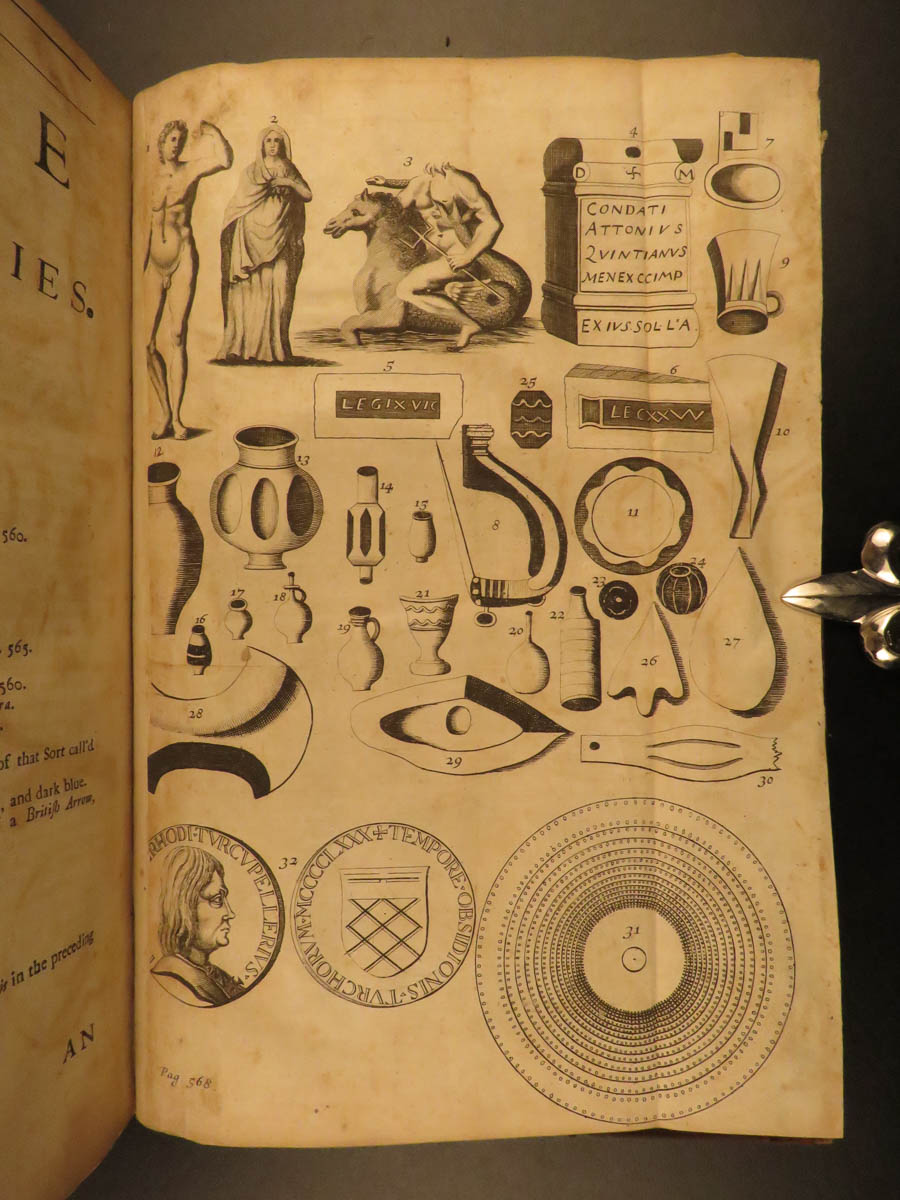 E
IES.
560.
565.
560.
ra.
of that Sort call'd
, and dark blue.
a British Arrow,
in the preceding
AN
2
3
4
7
D M
CONDATI
ATTONIVS
QVINTIANVS
MENEXCCIMP
EXIVS.SOL.L'A.
9
5
25
6
LEGIXVIC
LEGXXVV
10
12
13
14
15
8
11
16
17
18
19
21
20
22
23
24
26
27
28
29
30
RHODI·TVRCVPELLERIVS·
32
TEMPORE·OBSIDIONIS·TVRCHORVM·MCCCCLXXX
31
Pag 568